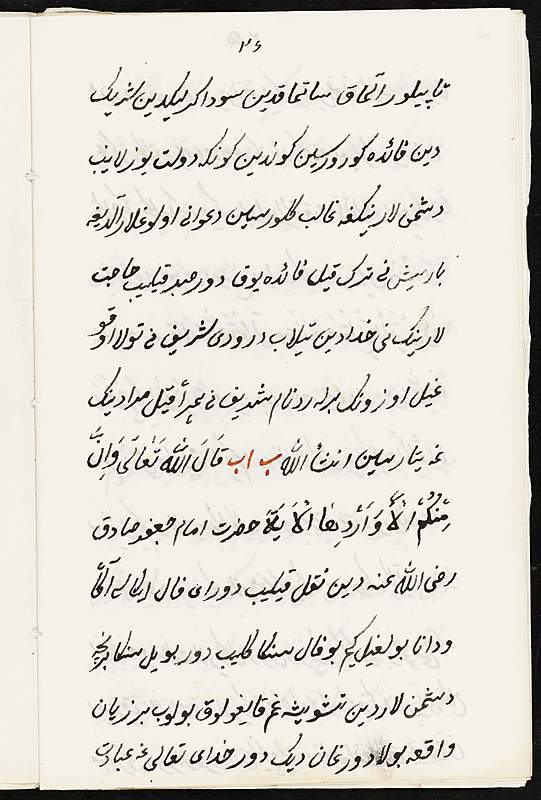 ۳۶
تاپیلور آتماق ساتماقدین سوداکرلیکدین شریک
دین فائده کورورسین کوندین کونکه دولت یوزلانیب
دشمن لارینکغه غالب کلورسین دعوانی اولوغلار آلدیغه
باریش نی ترک قیل فائده یوق دور صبر قیلیب حاجت
لارینک نی خدادین تیلاب درودی شریف نی تولا اوقو
غیل اوزونک برله نام شریف نی قیل مرادینک
غه یتارسین انشأ الله ب اب قَالَ اللهُ تَعَالَی وَاِنَّ
مِنْکُمْ اِلَّا وَارِدُهَا الْاَیَة حضرت امام جعفر صادق
رضی الله عنه دین نقل قیلیب دورای فال ایکاسی آکاه
ودانا بولغیل کیم بو فال سنکا کلیب دور بو ییل سنکا
دشمن لاردین تشویشه غم قایغولوق بولوب بر زیان
واقعه بولادورغان دیک دور خدای تعالی غه عبادت